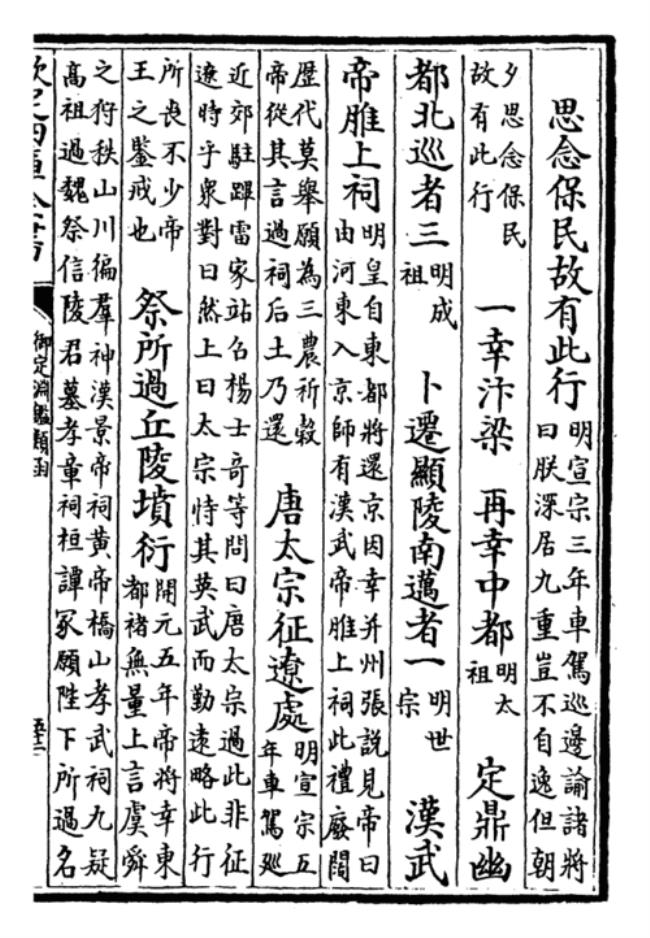 思念保民故有此行明宣宗三年車駕巡邊諭諸將曰朕深居九重豈不自逸但朝
夕思念保民故有此行 一幸汴梁 再幸中都明太祖 定鼎幽
都北巡者三明成祖 卜遷顯陵南邁者一明世宗 漢武
帝脽上祠明皇自東都將還京因幸并州張說見帝曰由河東入京師有漢武帝脽上祠此禮廢闊
歷代莫舉願為三農祈穀帝從其言過祠后土乃還 唐太宗征遼處明宣宗五年車駕廵
近郊駐蹕雷家站召楊士奇等問曰唐太宗過此非征遼時乎衆對曰然上曰太宗恃其英武而勤遠略此行
所喪不少帝王之鑒戒也 祭所過丘陵墳衍開元五年帝將幸東都褚無量上言虞舜
之狩秩山川徧羣神漢景帝祠黃帝橋山孝武祠九疑高祖過魏祭信陵君墓孝章祠桓譚冢願陛下所過名
欽定四庫全書
御定淵鑑類函